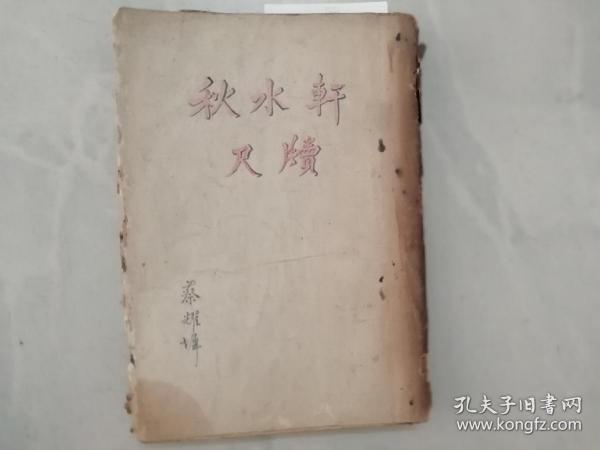 秋水軒
尺牘
蔡耀
孔夫子旧书网
www.kongfz.com